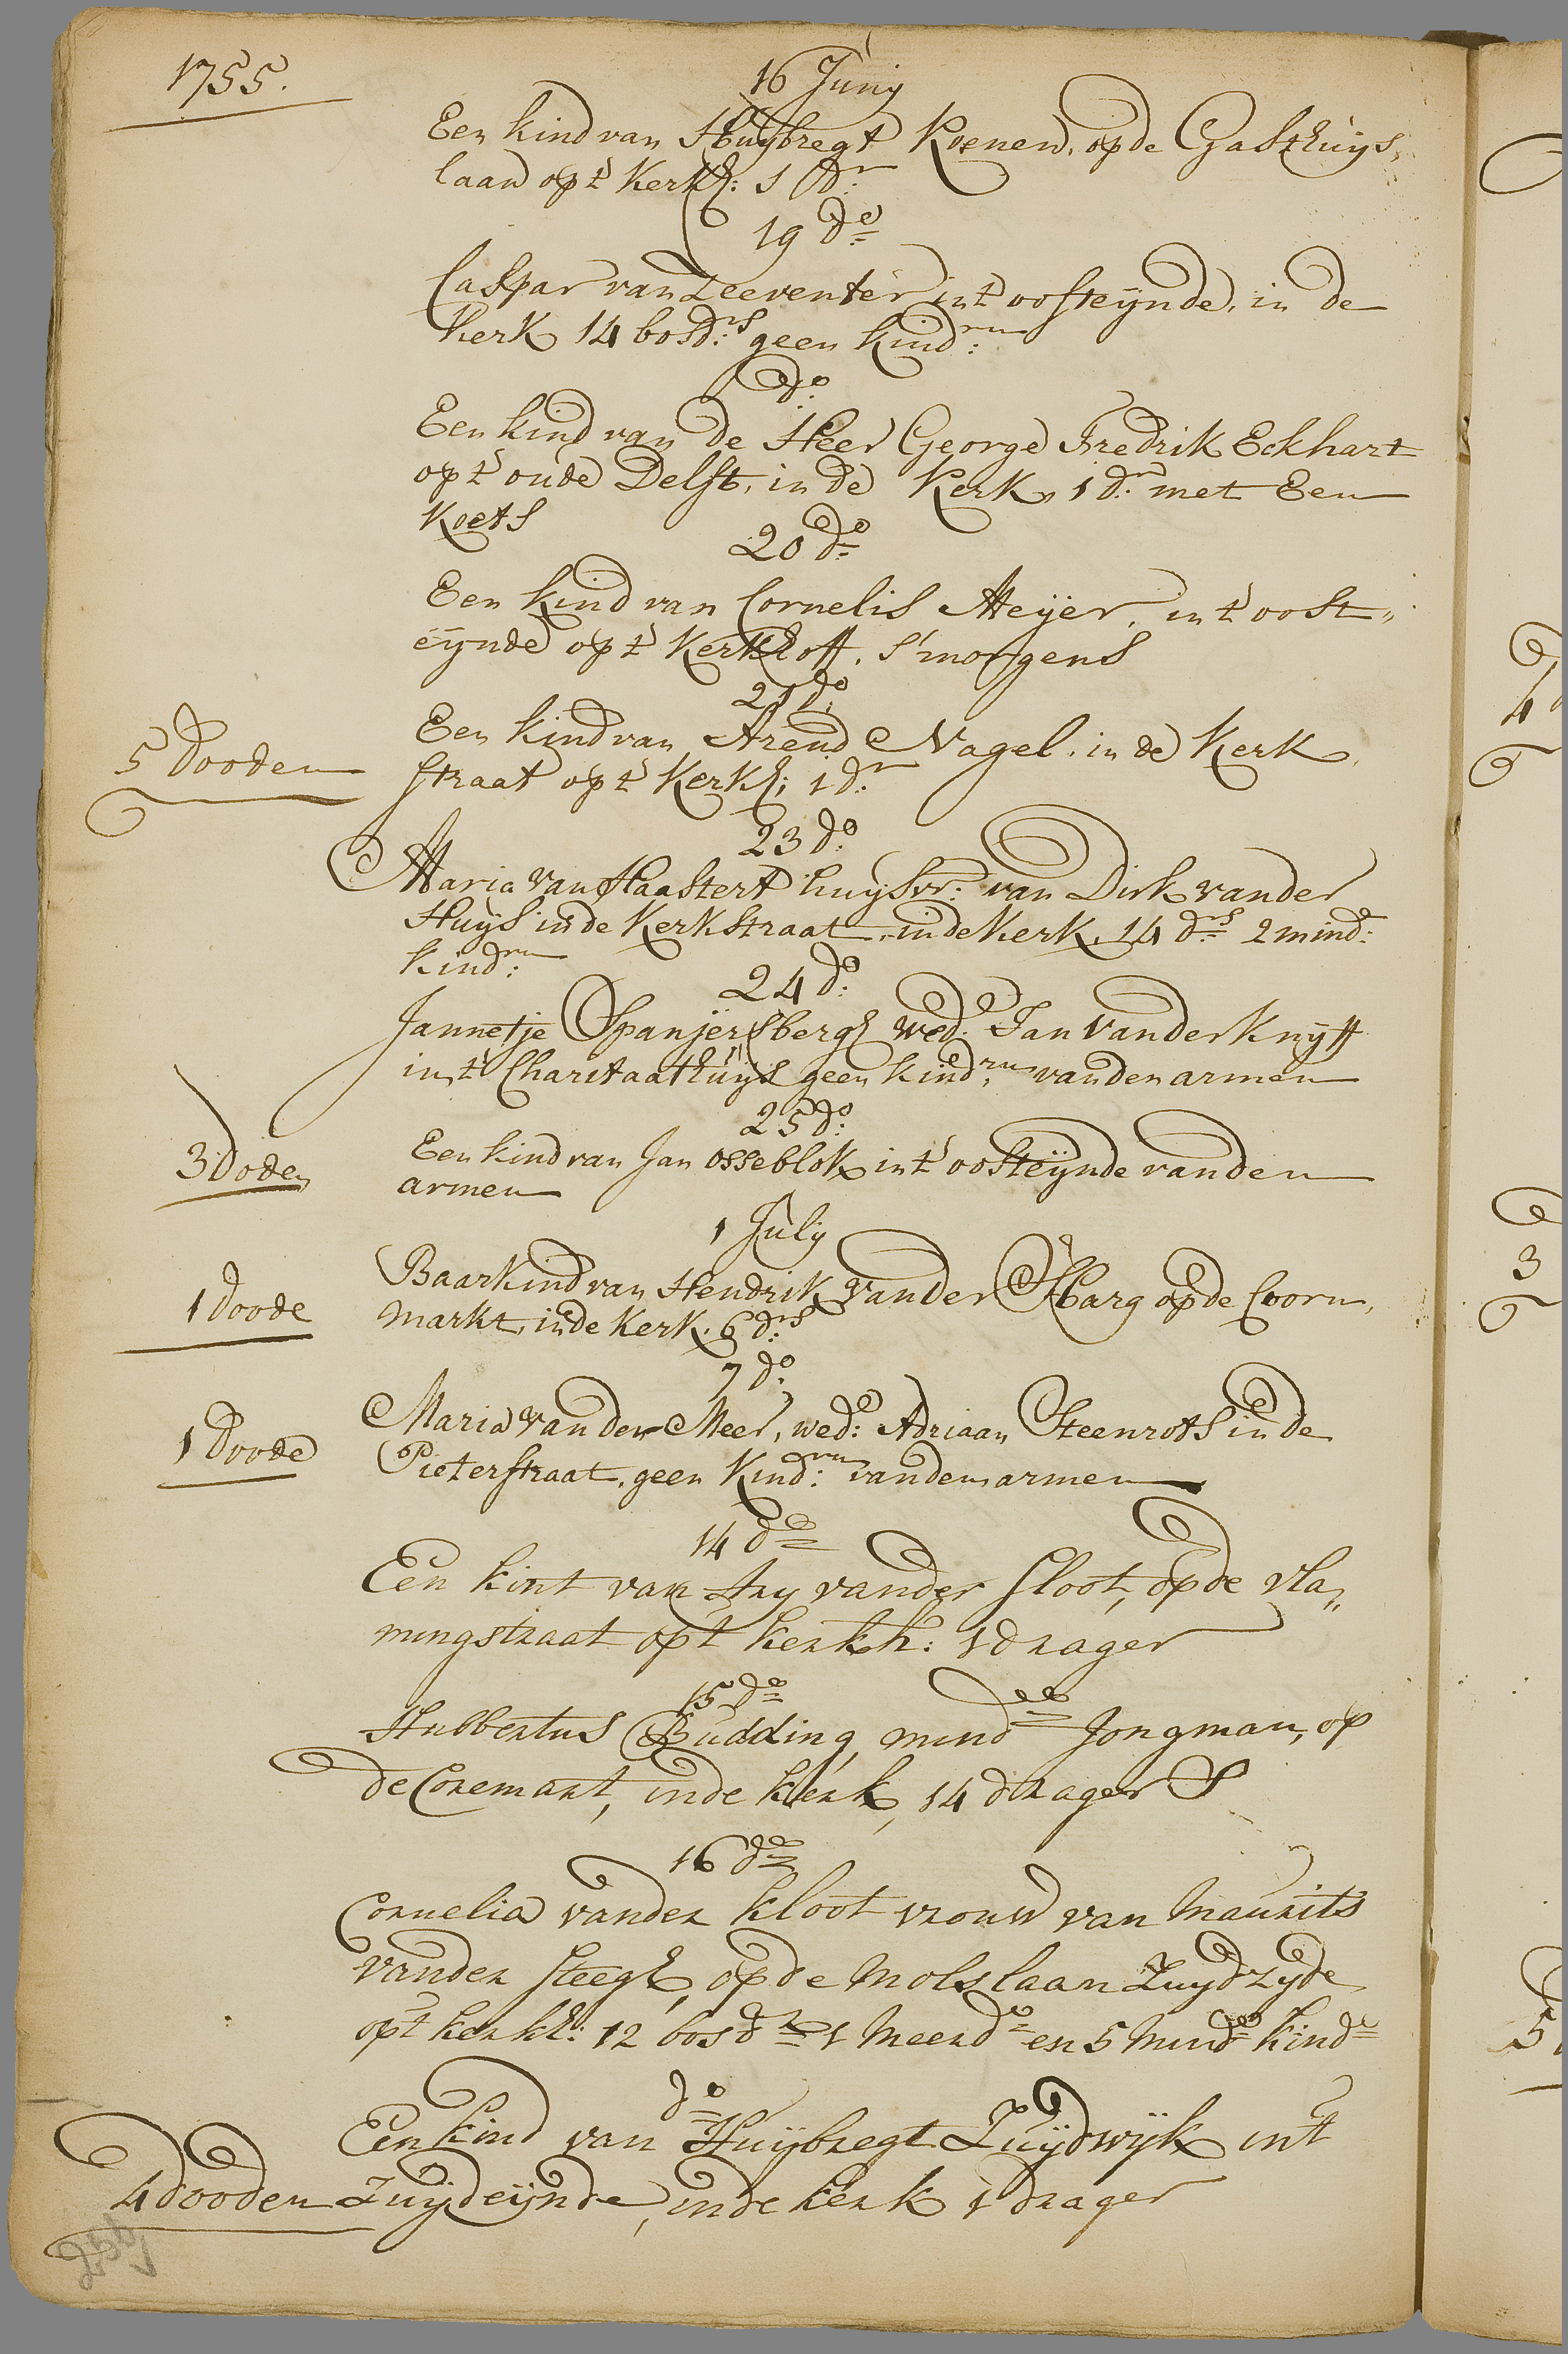 1755.
16 Junij
Een kind van Huijbregt Koenen, op de Gasthuijs,
laan op t' Kerkh: 1 dr:
19 do
Caspar van Zeeventer in t' oosteijnde, in de
Kerk 14 bosd:rs geen kind:ren
do:
Een kind van de Heer George Fredrik Eckhart
op t' oude Delft, in de Kerk, 1 d:r met Een
Koets
20 do
Een kind van Cornelis Meijer, in t' oost„
eijnde op t' Kerkhoff, s'morgens
21 do:
Een kind van Arend Nagel, in de Kerk,
5 Dooden
straat op t' Kerkh; 1 d:r
23 do:
Maria van Haastert huijsvr: van Dirk vander
Huijs in de Kerkstraat, in de Kerk, 14 d:rs 2 mind:
kind:ren
24 do:
Jannetje Spanjersbergh wed: Jan vander Knijff
in t' Charitaathuijs geen kind:ren vanden armen
25 do:
Een kind van Jan Osseblok in t' oosteijnde vanden
3 Doden
armen
1 Julij
Baarkind van Hendrik vander Harg op de Coorn,
1 doode
markt, in de Kerk. 6 d:rs
7 do:
Maria vander Meer, wed:e Adriaan Steenrots in de
1 Doode
Pieterstraat, geen Kind:ren vanden armen
14 do
Een kint van Ary vander Sloot, op de vla„
mingstraat op t kerkh: 1 drager
15 do
Hubbertus Budding, mind Jongman, op
de Coremart, in de kerk, 14 dragers
16 do
Cornelia vander kloot vrouw van Maurits
vander Steegh, op de molslaan Zuydzyde
op t kerkh: 12 bosdrs 1 Meerd en 5 Mind kind
do
Een kind van Huijbregt Zuijdwijk in t
4 dooden
Zuijdeijnde, in de kerk 1 drager